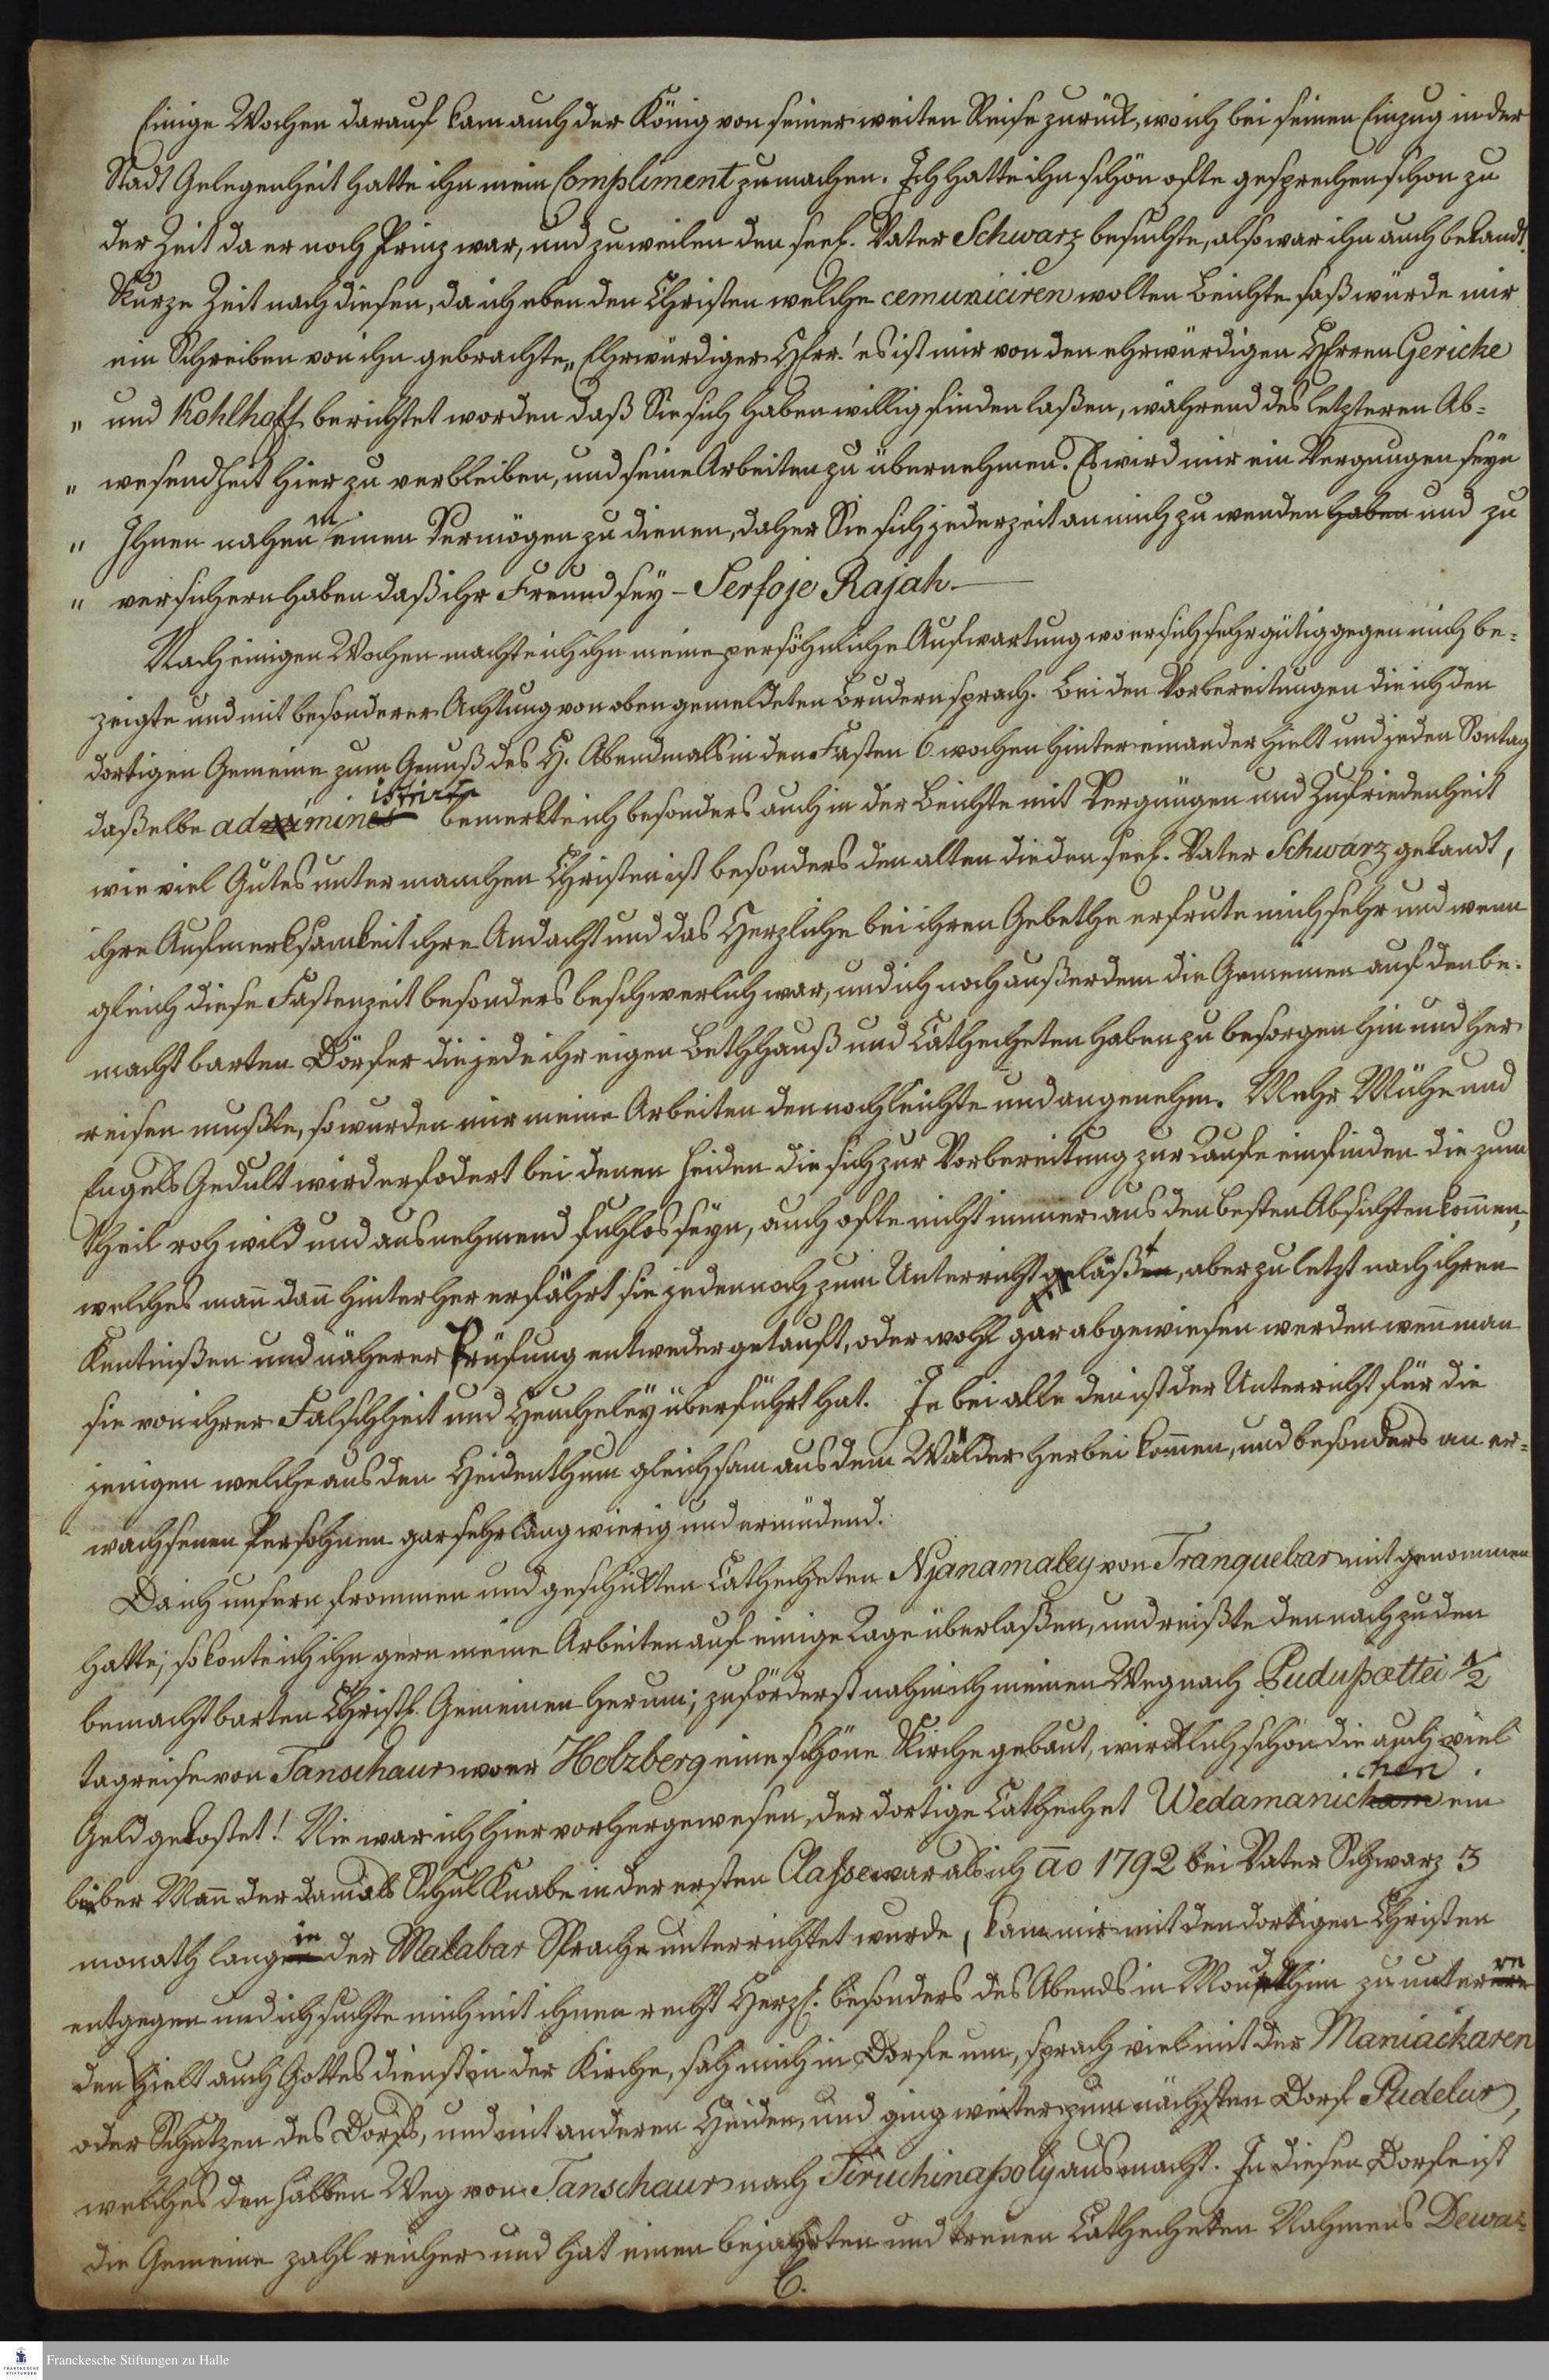 Einige Wochen darauf kam auch der König von seiner weiten Reise zurück, wo ich bei seinen Einzug in der
Stadt Gelegenheit hatte ihn mein Compliment zu machen. Ich hatte ihn schön ofte gesprochen schon zu
der Zeit da er noch Prinz war, und zuweilen den seel. Vater Schwarz besuchte, also war ihn auch bekandt.
Kurze Zeit nach diesen, da ich eben den Christen welche cemuniciren wolten Beichte saß wurde mir
ein Schreiben von ihn gebrachte „Ehrwürdiger Herr! es ist mir von den ehrwürdigen Herren Gericke
„ und Kohlhoff berichtet worden daß Sie sich haben willig finden laßen, während des letzteren Ab=
„ wesendheit hier zu verbleiben, und seine Arbeiten zu übernehmen. Es wird mir ein Vergnugen seyn
„ Ihnen nahen meinen Vermögen zu dienen, daher Sie sich jederzeit an mich zu wenden haben und zu
„ versichern haben daß ihr Freund sey – Serfoje Rajah —
Nach einigen Wochen machte ich ihn meine persöhnliche Aufwartung wo er sich sehr gütig gegen mich be=
zeigte und mit besonderer Achtung von oben gemeldeten Brudern sprach. Bei den Vorbereitungen die ich den
dortigen Gemeine zum Genuß des H. Abendmals in den Fasten 6 wochen hinter einander hielt und jeden Sontag
daßelbe administrirte bemerkte ich besonders auch in der Beichte mit Vergnügen und Zufriedenheit
wie viel Gutes unter manchen Christen ist besonders den alten die den seel. Vater Schwarz gekandt,
ihre Aufmerksamkeit ihre Andacht und das Herzliche bei ihren Gebethe erfreute mich sehr und wenn
gleich diese Fastenzeit besonders beschwerlich war, und ich noch außerdem die Gemeinen auf den be-
nachtbarten Dörfer die jede ihr eigen Bethhauß und Catheceten haben zu besorgen hin und her
reisen mußte, so wurden mir meine Arbeiten dennoch leichte und angenehm. Mehr Mühe und
Engels Gedult wird erfodert bei denen Heiden die sich zur Vorbereitung zur Taufe einfinden die zum
Theil roh wild und ausnehmend fuhlos seyn, auch ofte nicht immer aus den besten Absichten kom̄en,
welches man̄ dan̄ hinterher erfährt sie jedennoch zum Unterricht läßt, aber zu letzt nach ihren
Kentnißen und näherer Prüfung entweder getauft, oder wohl gar abgewiesen werden wen̄ man
sie von ihrer Falschheit und Heucheley überführt hat. Ja bei alle den ist der Unterricht für die
jenigen welche aus den Heidenthum gleichsam aus dem Wälder herbei kom̄en, und besonders an er=
wachsenen Persohnen gar sehr langwierig und ermüdend.
Da ich unsern frommen und geschikten Catheceten Njanamabey von Tranquebar mit genommen
hatte, so konte ich ihn gern meine Arbeiten auf einige Tage überlaßen, und reißte den nach zu den
benachtbarten Christl. Gemeinen herum; zuförderst nahm ich meinen Weg nach Pudupœttei ½
tagreise von Tanschaur wo er Holzberg eine schöne Kirche gebaut, wircklich schön die auch viel
Geld gekostet! Nie war ich hier vorher gewesen, der dortige Cathechet Wedamanicken ein
lieber Man̄ der damals Schul Knabe in der ersten Classe war als ich ao 1792 bei Vater Schwarz 3
monath lang in der Malabar Sprache unterrichtet wurde, kam mir mit den dortigen Christen
entgegen und ich suchte mich mit ihnen recht Herzl. besonders des Abends in Mondschein zu unterre
den hielt auch Gottesdienst in der Kirche, sah mich in Dorfe um, sprach viel mit der Maniackaren
oder Schutzen des Dorfs, und mit anderen Heiden, und ging weiter zum nächsten Dorf Pudelur,
welches den halben Weg von Tanschaur nach Tiruchinapoly ausmacht. In diesen Dorfe ist
die Gemeine zahlreicher und hat einen bejahrten und treuen Catheceten Nahmens Dewa=
C.
Franckesche Stiftungen zu Halle